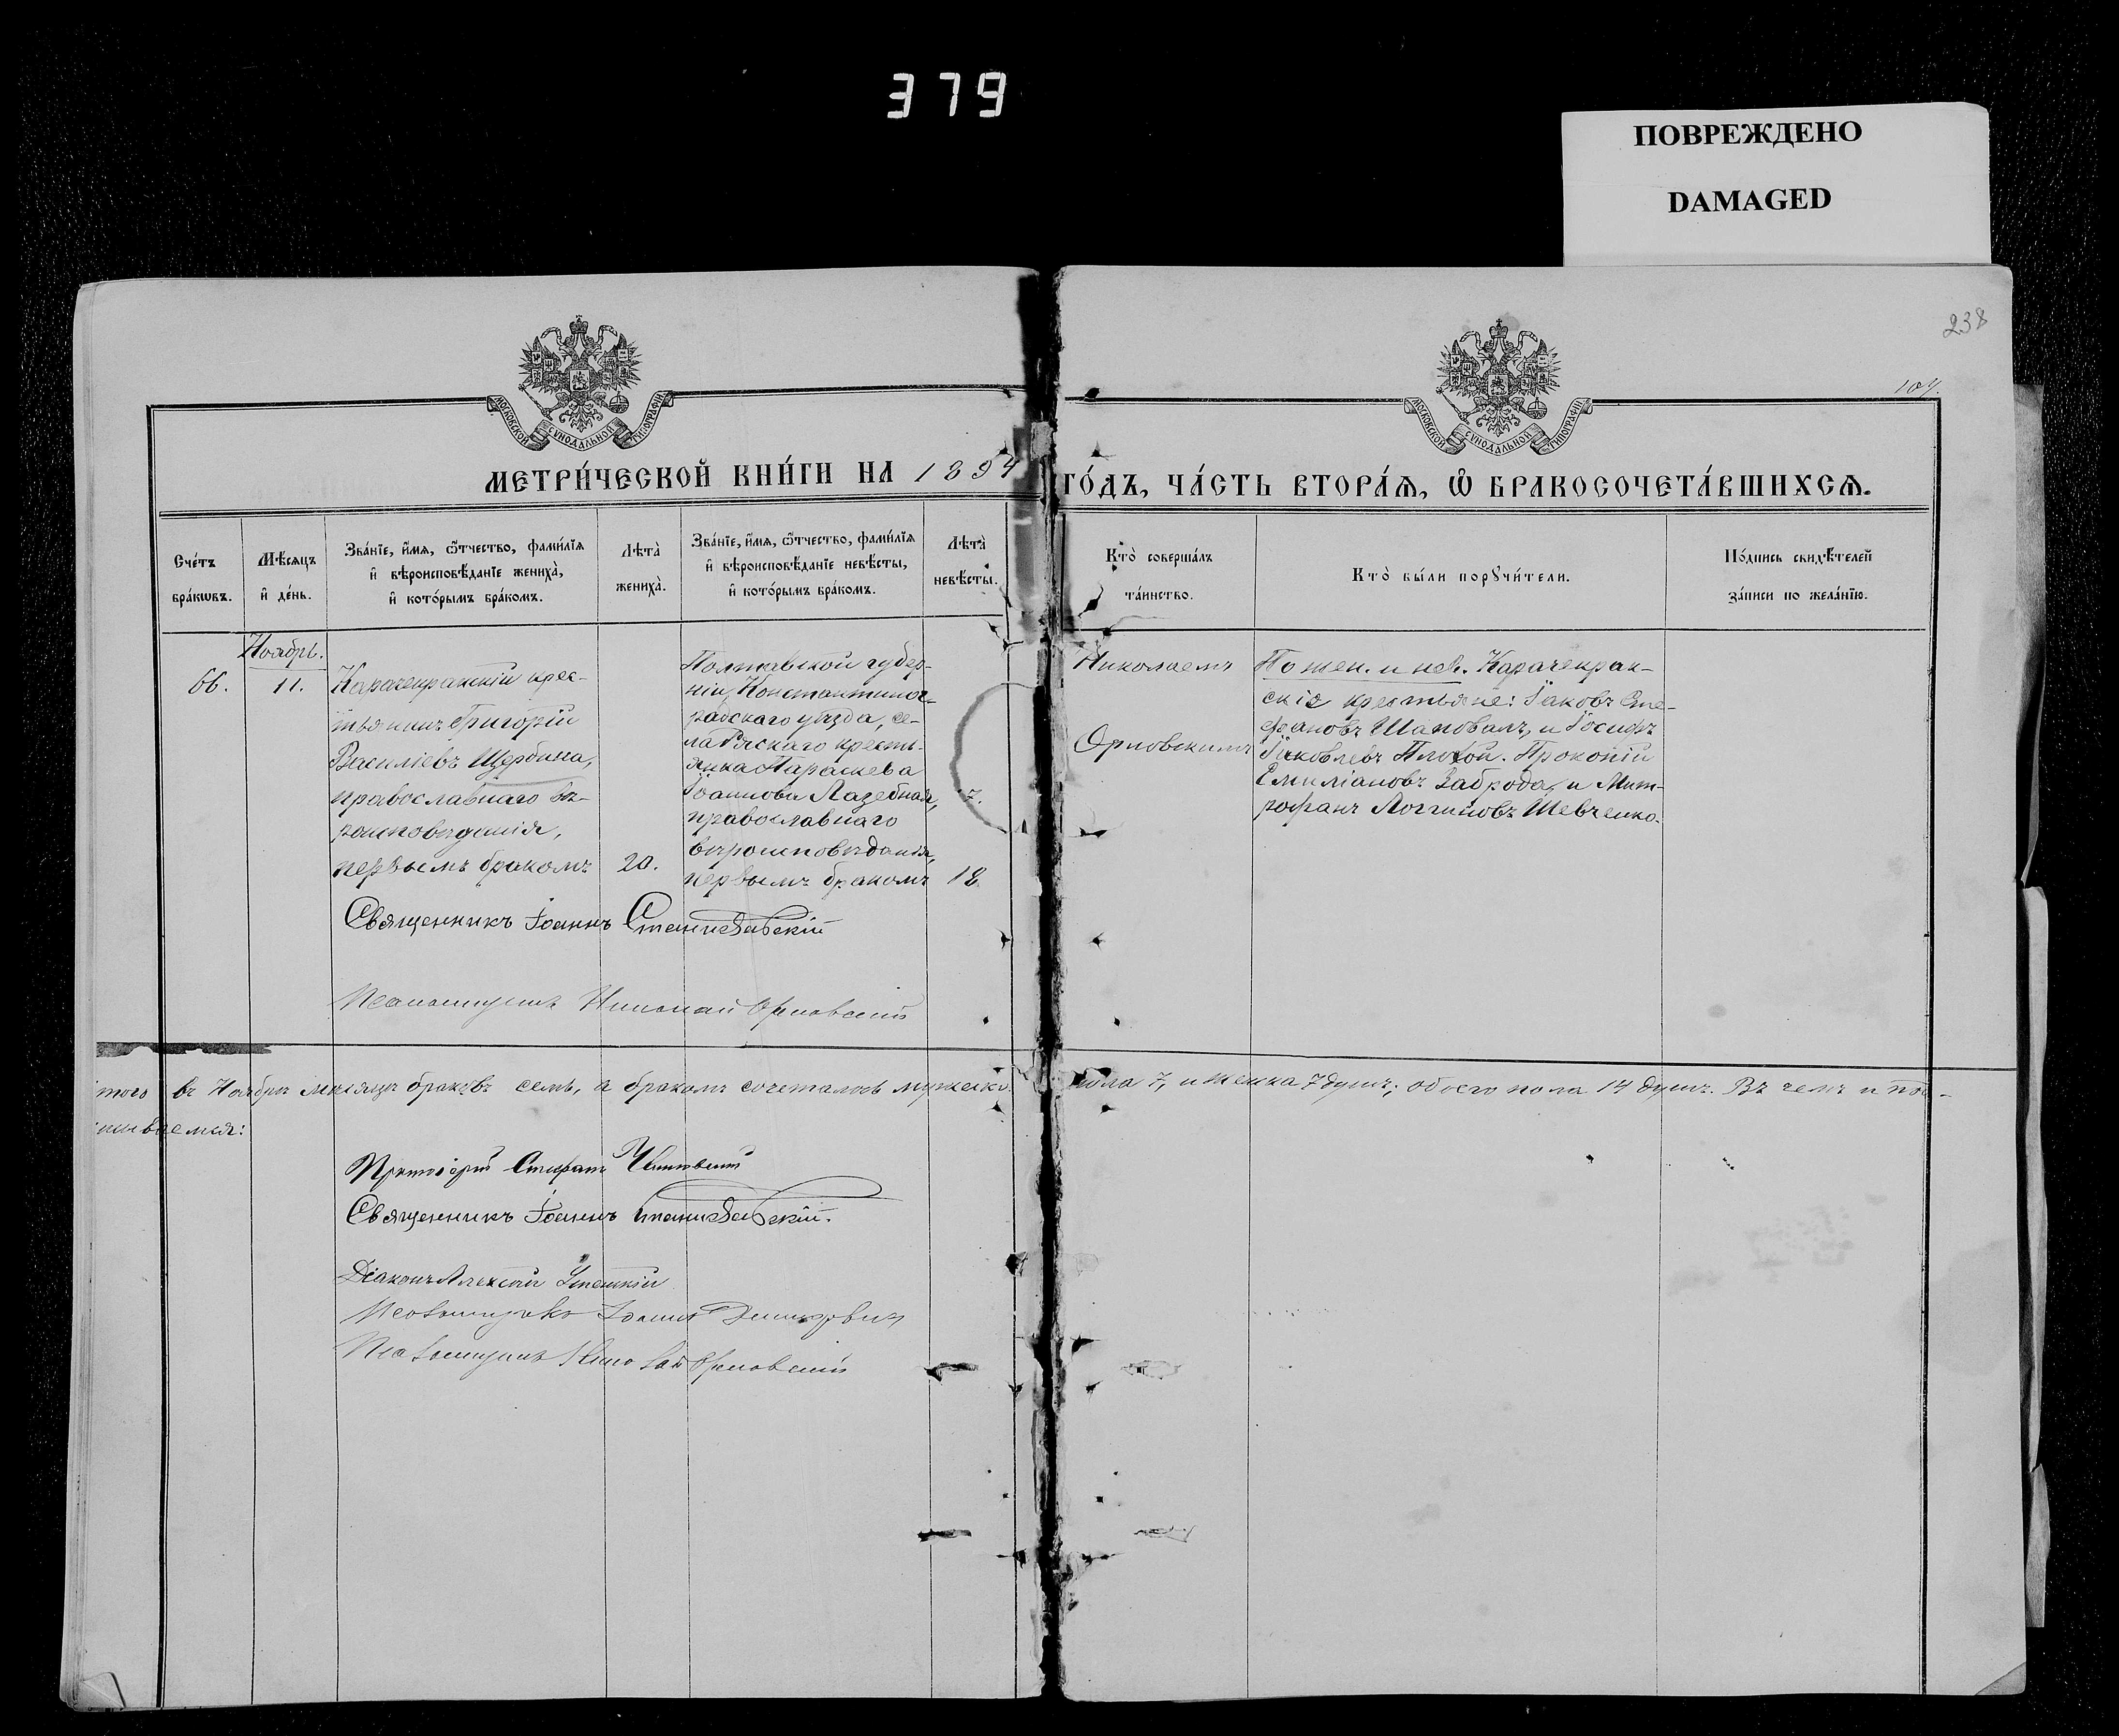 379
ПОВРЕЖДЕНО
DAMAGED
238
107.
МОСКОВСКОЙ СѴНОДАЛЬНОЙ ТИПОГРАФІИ
МОСКОВСКОЙ СѴНОДАЛЬНОЙ ТИПОГРАФІИ
МЕТРИ́ЧЕСКОЙ КНИ́ГИ НА 1894 ГО́ДЪ, ЧА́СТЬ ВТОРА́Ѧ, Ѽ БРАКОСОЧЕТА́ВШИХСѦ.
Сче́тъ
бра́кѡвъ.
Мѣ́сяцъ
и҆ де́нь.
Зва́нїе, и҆́мя, ѻ҆́тчество, фами́лїя
и҆ вѣроисповѣ́данїе жениха̀,
и҆ кото́рымъ бра́комъ.
Лѣта̀
жениха̀.
Зва́нїе, и҆́мя, ѻ҆́тчество, фами́лїя
и҆ вѣроисповѣ́данїе невѣ́сты,
и҆ кото́рымъ бра́комъ.
Лѣта̀
невѣ́сты.
Кто̀ соверша́лъ
та́инство.
Кто̀ бы́ли порꙋчи́тели.
По́дпись свидѣ́телей
за́писи по жела́нїю.
Ноябрь.
66.
11.
Карачекракскій крес-
тьянинъ Григорій
Василіевъ Щербина,
православнаго вѣ-
роисповѣданія,
первымъ бракомъ
20.
Полтавской губер-
ніи, Константиног-
радскаго уѣзда, се-
ла Ряскаго кресть-
янка Параскева
Іоаннова Лазебная,
православнаго
вѣроисповѣданія,
первымъ бракомъ
18.
Николаемъ
Орловскимъ
По жен. и нев. Карачекрак-
скіе крестьяне: Іаковъ Сте-
фановъ Шаповалъ, и Іосифъ
Іаковлевъ Плохой. Прокопій
Емиліановъ Заброда, и Мит-
рофанъ Логгиновъ Шевченко.
Священникъ Іоаннъ Станиславскій
Псаломщикъ Николай Орловскій
того въ Ноябрѣ мѣсяцѣ браковъ семь, а бракомъ сочеталось мужеска пола 7, и женска 7 душъ; обоего пола 14 душъ. Въ чемъ и под-
сываемся:
Протоіерей Стефанъ
Священникъ Іоаннъ Станиславскій.
Діаконъ Алексій
Псаломщикъ Іоаннъ
Псаломщикъ Николай Орловскій